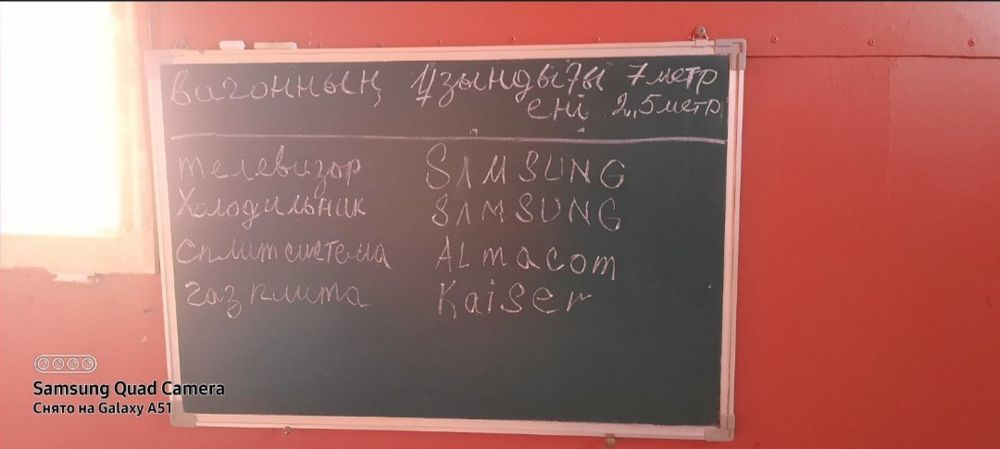 вагонның ұзындығы 7 метр
ені 2,5 метр
телевизор SAMSUNG
Холодильник SAMSUNG
сплит система ALmacom
газ плита Kaiser
Samsung Quad Camera
Снято на Galaxy A51